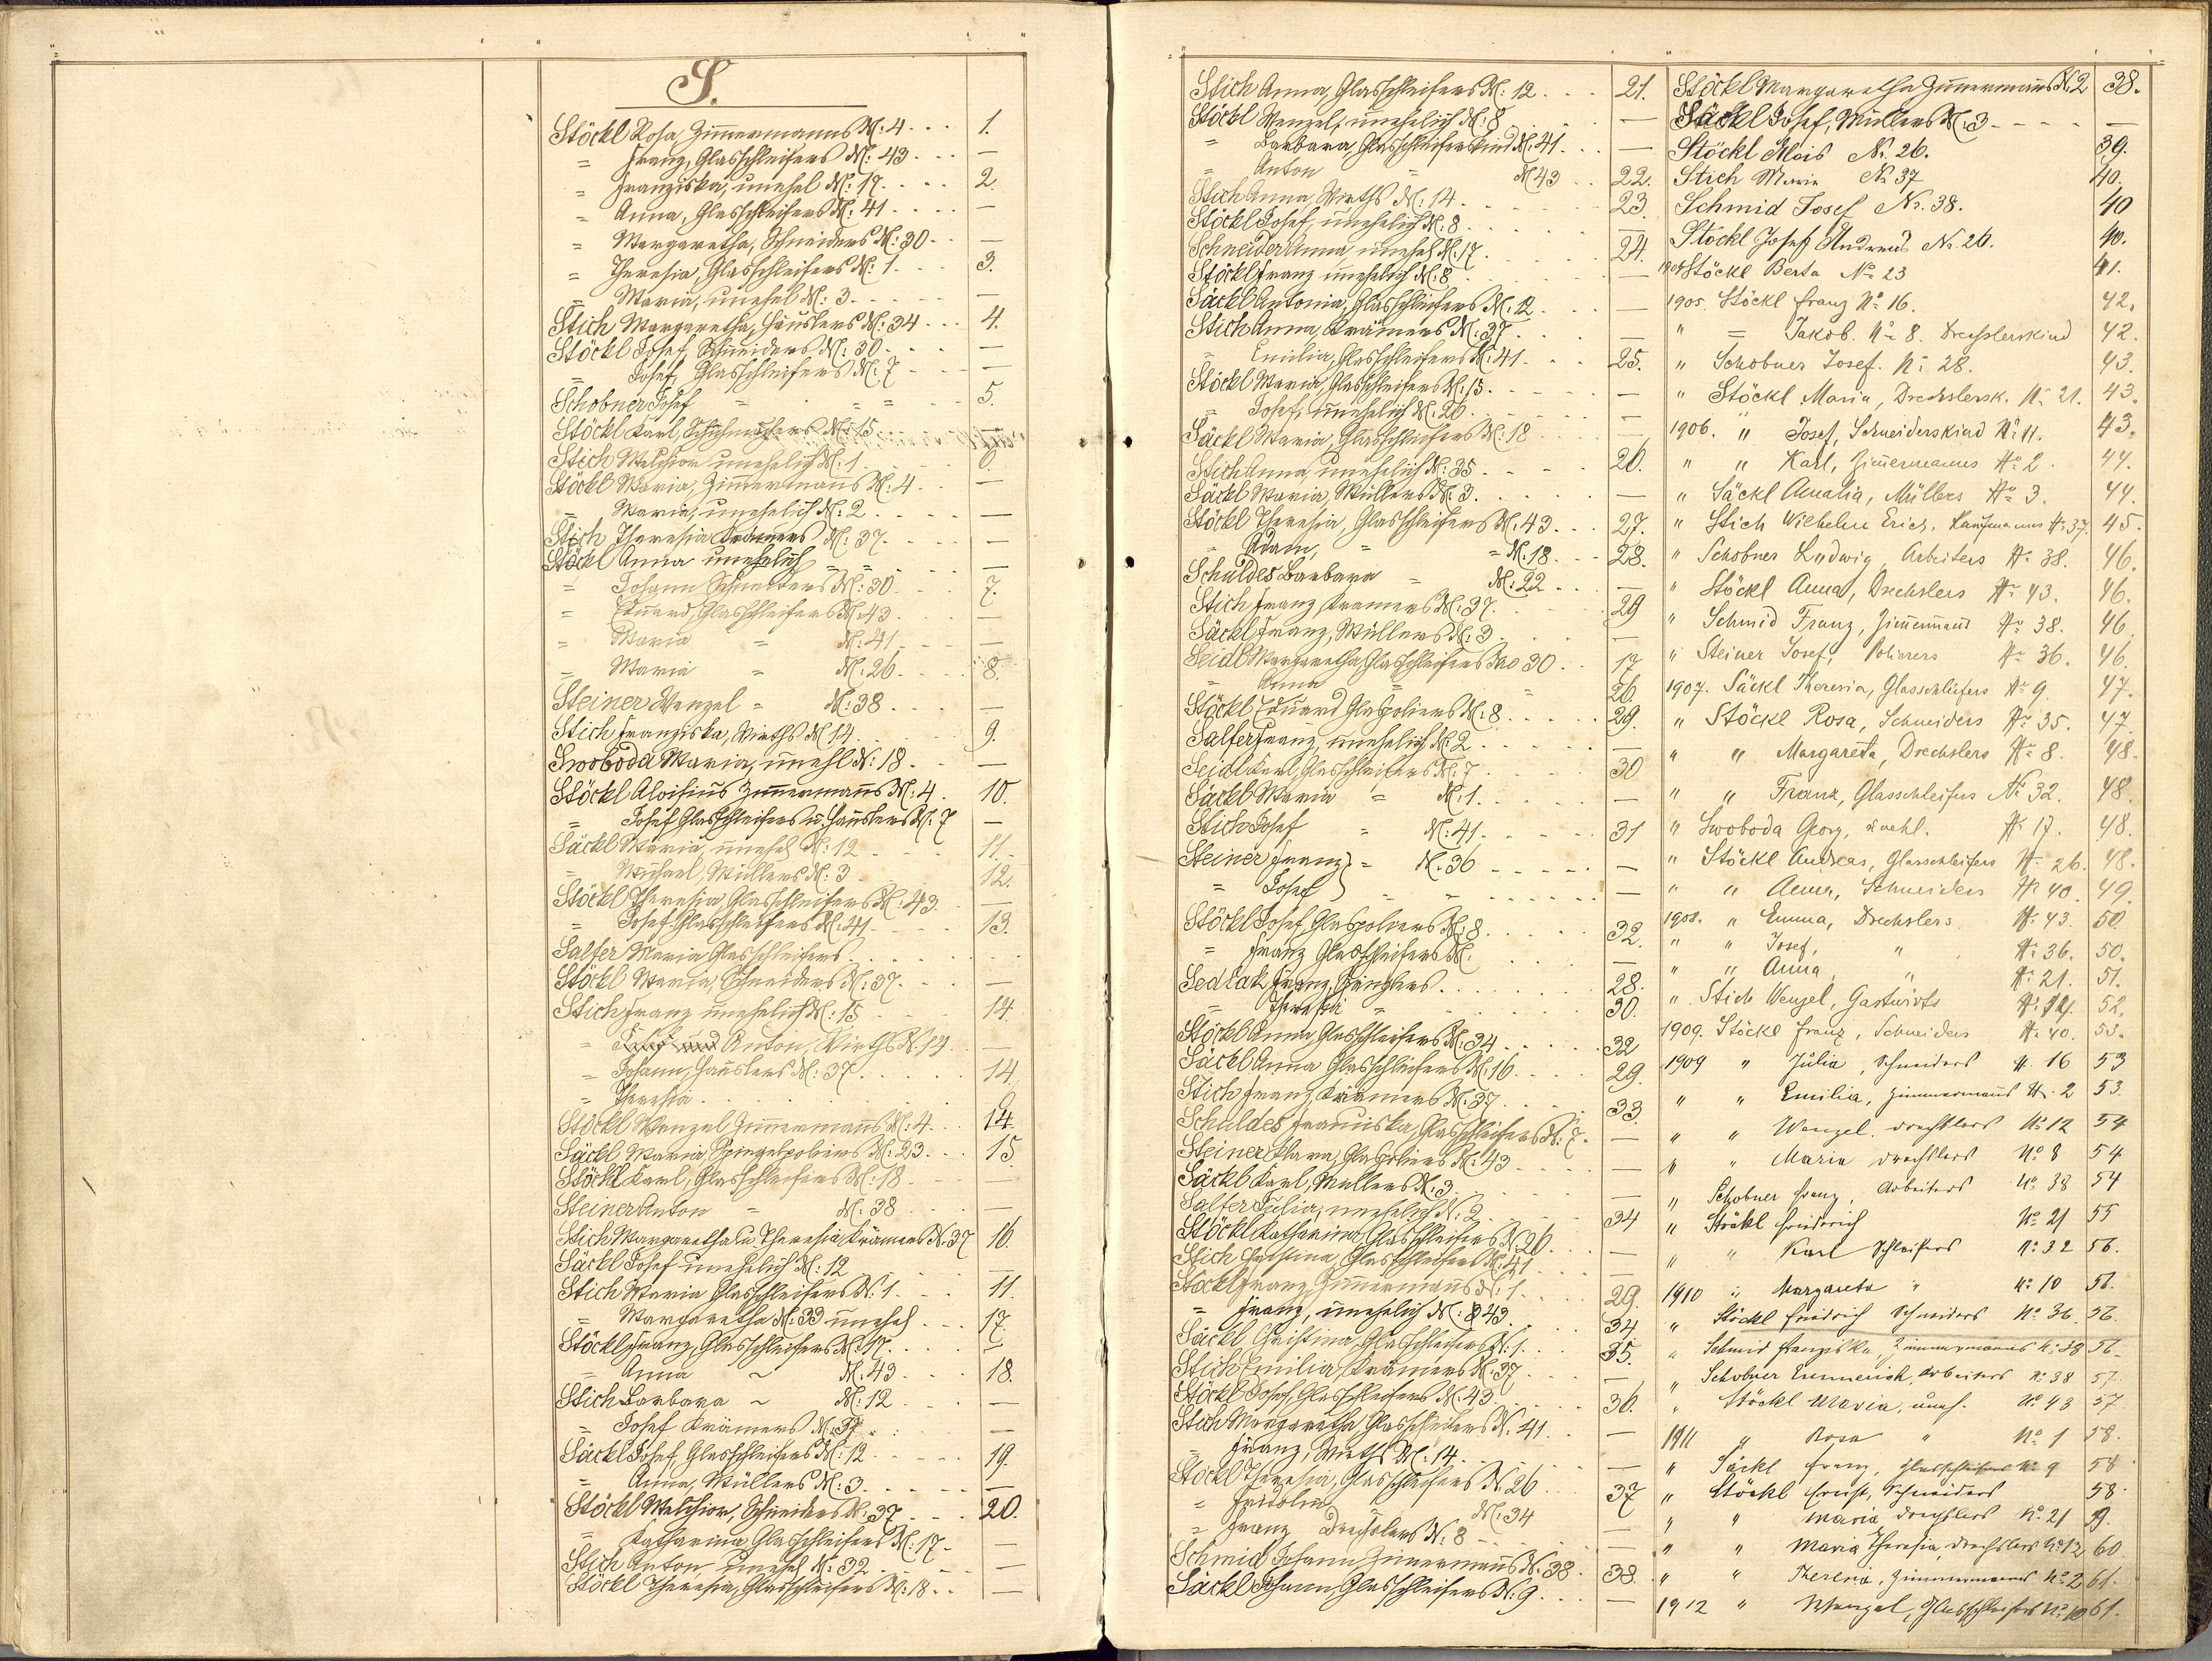 S.
Stöckl Rosa Zimmermanns N: 4 . . . 1.
= Franz, Glasschleifers N: 43 . . . —
= Franziska, unehel N: 17 . . . . 2.
= Anna, Glasschleifers N: 41 . . . . —
= Margaretha, Schneiders N: 30 . . —
= Theresia, Glasschleifers N: 1 . . . 3.
= Maria, unehel N: 3 . . . . . —
Stich Margaretha, Häuslers N: 34 . . . 4.
Stöckl Josef, Schneiders N: 30 . . . —
= Josef, Glasschleifers N: 7 . . . —
Schobner Josef = = = . . 5.
Stöckl Karl, Schuhmachers N: 15 . . . —
Stich Melchior unehelich N: 1 . . . 6.
Stöckl Maria, Zimmermanns N: 4 . . —
= Maria, unehelich N: 2 . . . . —
Stich Theresia Krämers N: 37 . . . . —
Stöckl Anna unehelich = = . . . —
= Johann Schneiders N: 30 . . . 7.
= Eduard, Glasschleifers N. 43 . . . —
= Maria = N: 41 . . . —
= Maria = N: 26 . . . . 8.
Steiner Wenzel = N: 38 . . . —
Stich Franziska, Wirths N 14 . . . . . 9.
Swoboda Maria, unehl N: 18 . . —
Stöckl Aloisius Zimmermanns N: 4 . 10.
= Josef Glasschleifers u. Häuslers N: 7 —
Säckl Maria, unehel N: 12 . . . . 11.
= Michael, Müllers N: 3 . . . . 12.
Stöckl Theresia, Glasschleifers N: 43 . —
= Josef Glasschleifers N. 41 . . . 13.
Salfer Maria Glasschleifers . . . . . .
Stöckl Maria, Schneiders N: 37 . . . —
Stich Franz unehelich N: 15 . . . . 14.
= Anton, Wirths N. 14 . . —
= Johann, Häuslers N: 37 . . . . . 14.
= Theresia . . . . . . . .
Stöckl Wenzel Zimmermanns N: 4 . . . 14.
Säckl Maria, Spiegelpoliers N: 23 . . . 15
Stöckl Karl, Glasschleifers N: 18 . . . —
Steiner Anton = N: 38 . . . —
Stich Margaretha u. Theresia Krämers N. 37 16.
Säckl Josef unehelich N: 12 . . . . —
Stich Maria Glasschleifers N. 1 . . . 11.
= Margaretha N: 33 unehel . . . 17.
Stöckl Franz, Glasschleifers N: 17 . . . —
= Anna ~ N. 43 . . . 18.
Stich Barbara ~ N: 12 . . . —
= Josef Krämers N: 37 . . . —
Säckl Josef, Glasschleifers N: 12 . . . . 19.
= Anna, Müllers N: 3 . . . . . —
Stöckl Melchior, Schneiders N: 37 . . . 20.
= Katharina Glasschleifers N: 17 - —
Stich Anton unehel N: 32 . . . . —
Stöckl Theresia, Glasschleifers N: 18 . . —
Stich Anna, Glasschleifers N: 12 . . . 21.
Stöckl Wenzel, unehelich N: 8 . . . —
= Barbara Glasschleiferskind N: 41 . . —
= Anton = N 43 . . 22.
Stich Anna, Wirths N: 14 . . . . . 23.
Stöckl Josef, unehelich N. 8 . . . . . —
Schneider Anna, unehel N: 17 . . . . 24.
Stöckl Franz unehelich N. 8 . . . . —
Säckl Antonia, Glasschleifers N: 12 . . . —
Stich Anna, Krämers N: 37 . . . . —
= Emilia, Glasschleifers N: 41 . . . 25.
Stöckl Maria, Glasschleifers N: 15 . . . . —
= Josef, unehelich N: 26 . . . . . —
Säckl Maria, Glasschleifers N: 18 . . . —
Stich Anna, unehelich N: 35 . . . . 26.
Säckl Maria, Müllers N: 3 . . . . . —
Stöckl Theresia, Glasschleifers N. 43 . . . 27.
= Adam, = = N. 18 . . . 28.
Schuldes Barbara = N: 22 . . . —
Stich Franz, Krämers N: 37 . . . . . 29
Säckl Franz, Müllers N: 3 . . . . —
Seidl Margaretha, Glasschleifers No 30 . . 17
= Anna = = 26.
Stöckl Eduard Glaspoliers N: 8 . . . . . 29.
Salfer Franz, unehelich N: 2 . . . . . —
Seidl Karl, Glasschleifers N: 7 . . . . . 30
Säckl Maria = N: 1 . . . . . —
Stich Josef = N: 41 . . . . . 31
Steiner Franz } = N: 36 . . . . . —
= Josef } . . . . . . —
Stöckl Josef, Glaspoliers N: 8 . . . . . 32.
= Franz Glasschleifers N. . . . . —
Sedlak Franz, Spenglers . . . . . . 28.
= Theresia = . . . . . . 30.
Stöckl Anna, Glasschleifers N: 34 . . . . . 32
Säckl Anna Glasschleifers N. 16 . . . . 29.
Stich Franz, Krämers N. 37 . . . . . 33.
Schuldes Franziska, Glasschleifers N: 7. —
Steiner Klara, Glaspoliers N: 43 . . . . —
Säckl Karl, Müllers N: 3 . . . . . —
Salfer Julia, unehelich N: 2 . . . . . 34
Stöckl Katharina Glasschleifers N. 26 . . —
Stich Christina, Glasschleifers N: 41 . . —
Stöckl Franz, Zimmermanns N: 1 . . . . 29.
= Franz, unehelich N: 43 . . . . 34.
Säckl Christina, Glasschleifers N: 1 . . . 35.
Stich Emilia, Krämers N. 37 . . . . —
Stöckl Josef, Glasschleifers N: 43 . . . 36.
Stich Margaretha Glasschleifers N. 41 . . —
= Franz, Wirths N. 14 . . . . . —
Stöckl Theresia, Glasschleifers N. 26 . . . 37
= Fridolin N: 34 —
= Franz Drechslers N. 8 . . . . —
Schmid Johann Zimmermanns N. 38 . 38.
Säckl Johann, Glasschleifers N. 9 . . . —
Stöckl Margaretha Zimmermanns N. 2 38.
Säckl Josef, Müllers N. 3 - - - - —
Stöckl Alois Nr. 26. 39.
Stich Maria No 37 40.
Schmid Josef Nr. 38. 40
Stöckl Josef Andreas Nr. 26. 40.
Stöckl Berta No 23 41.
1905. Stöckl Franz No 16. 42.
" = Jakob. No 8. Drechslerskind 42.
" Schobner Josef. No 28. 43.
" Stöckl Maria, Drechslersk. No 21. 43.
1906. " Josef, Schneiderskind No 11. 43.
" " Karl, Zimmermanns No 2. 44.
" Säckl Amalia, Müllers No 3. 44.
" Stich Wilhelm Erich, Kaufmanns No 37. 45.
" Schobner Ludwig, Arbeiters No 38. 46.
" Stöckl Anna, Drechslers No 43. 46.
" Schmid Franz, Zimmermanns No 38. 46.
" Steiner Josef, Polierers No 36. 46.
1907. Säckl Theresia, Glasschleifers No 9. 47.
" Stöckl Rosa, Schneiders No 35. 47.
" " Margareta, Drechslers No 8. 48.
" " Franz, Glasschleifers No 32. 48.
" Swoboda Georg, unehl. No 17. 48.
" Stöckl Andreas, Glasschleifers No 26. 48.
" " Anna, Schneiders No 40. 49.
1908. " Emma, Drechslers No 43. 50.
" " Josef, " No 36. 50.
" " Anna, " No 21. 51.
" Stich Wenzel, Gastwirts No 14. 52.
1909. Stöckl Franz, Schneiders No 40. 53.
1909 " Julia, Schneiders No 16 53
" " Emilia, Zimmermanns No 2 53.
" " Wenzel, Drechslers No 12 54
" " Maria Drechslers No 8 54
" Schobner Franz, Arbeiters No 38 54
" Stöckl Friedrich No 21 55
" " Karl Schleifers No 32 56.
1910 " Margareta " No 10 56.
" Stöckl Friedrich Schneiders No 36. 56.
" Schmid Franziska, Zimmermanns No 38 56.
" Schobner Emmerich, Arbeiters No 38 57.
" Stöckl Maria, uneh. No 43 57
1911 " Rosa " No 1 58.
" Säckl Franz, Glasschleifers No 9 58
" Stöckl Ernst, Schneiders 58.
" " Maria Drechslers No 21
" " Maria Theresia, Drechslers No 12 60
" " Theresia, Zimmermanns No 2 61.
1912 " Wenzel, Glasschleifers No 10 61.